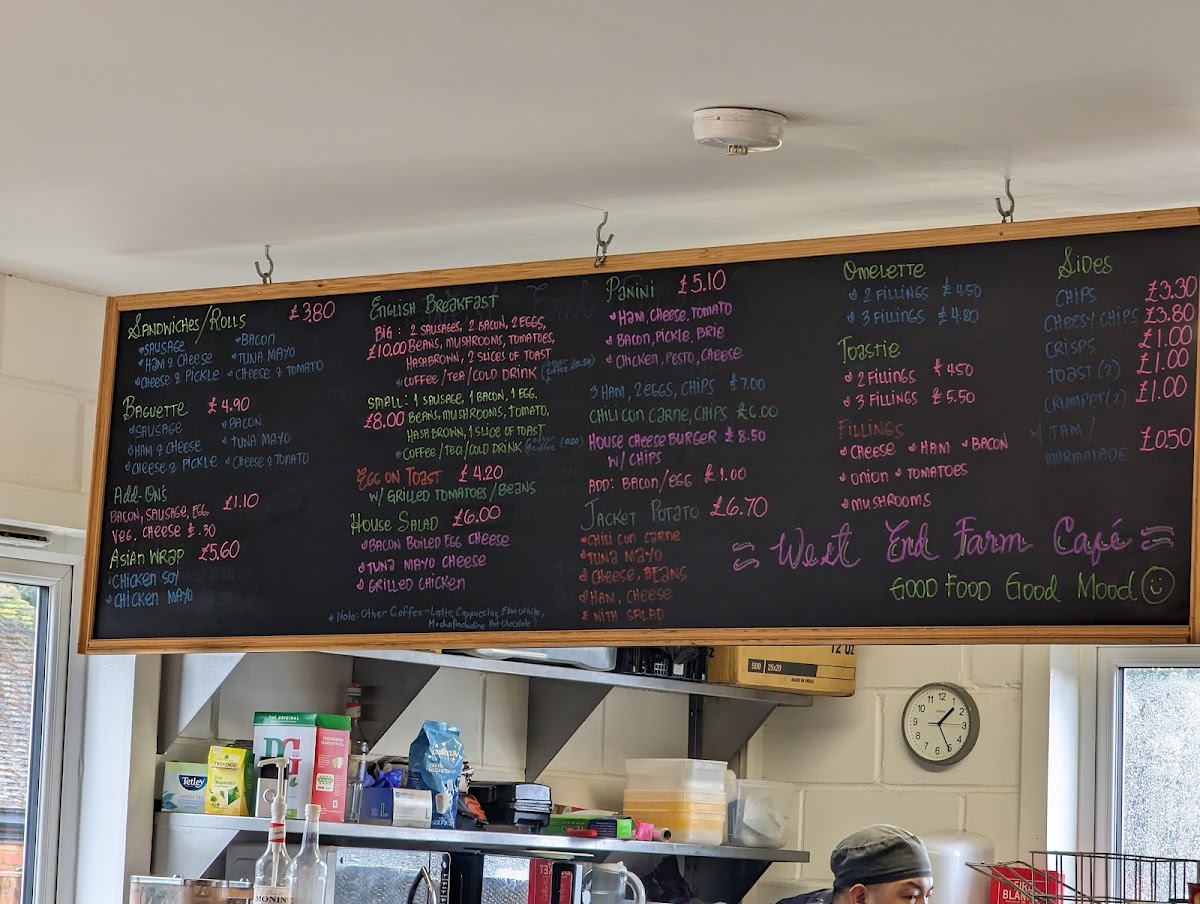 Sandwiches/Rolls £3.80
Sausage Bacon
Ham & Cheese Tuna Mayo
Cheese & Pickle Cheese & Tomato
Baguette £4.90
Sausage Bacon
Ham & Cheese Tuna Mayo
Cheese & Pickle Cheese & Tomato
Add-On's
Bacon, Sausage, Egg £1.10
Veg. Cheese £.30
Asian Wrap £5.60
Chicken Soy
Chicken Mayo
English Breakfast
Big: 2 Sausages, 2 Bacon, 2 Eggs,
£10.00 Beans, Mushrooms, Tomatoes,
Hashbrown, 2 Slices of Toast
*Coffee/Tea/Cold Drink (other coffee £0.50)
Small: 1 Sausage, 1 Bacon, 1 Egg.
£8.00 Beans, Mushrooms, Tomato,
Hash Brown, 1 Slice of Toast
*Coffee/Tea/Cold Drink (other coffee £0.50)
Egg on Toast £4.20
w/ Grilled Tomatoes/Beans
House Salad £6.00
Bacon Boiled Egg Cheese
Tuna Mayo Cheese
Grilled Chicken
*Note: Other Coffee - Latte, Cappuccino, Flat White,
Mocha (Including Hot Chocolate)
Panini £5.10
Ham, Cheese, Tomato
Bacon, Pickle, Brie
Chicken, Pesto, Cheese
3 Ham, 2 Eggs, Chips £7.00
Chili con Carne, Chips £6.00
House Cheese Burger £8.50
w/ Chips
Add: Bacon/Egg £1.00
Jacket Potato £6.70
Chili con Carne
Tuna Mayo
Cheese, Beans
Ham, Cheese
with Salad
Omelette
2 Fillings £4.50
3 Fillings £4.80
Toastie
2 Fillings £450
3 Fillings £5.50
Fillings
Cheese Ham Bacon
Onion Tomatoes
Mushrooms
Sides
Chips £3.30
Cheesy Chips £3.80
Crisps £1.00
Toast (2) £1.00
Crumpet (2) £1.00
w/ Jam/
Marmalade £0.50
West End Farm Café
Good Food Good Mood
12 oz
500 25x20
MADE IN INDIA
THE ORIGINAL
PG
Tetley
TWININGS
12 1 2 3 4 5 6 7 8 9 10 11
MONIN